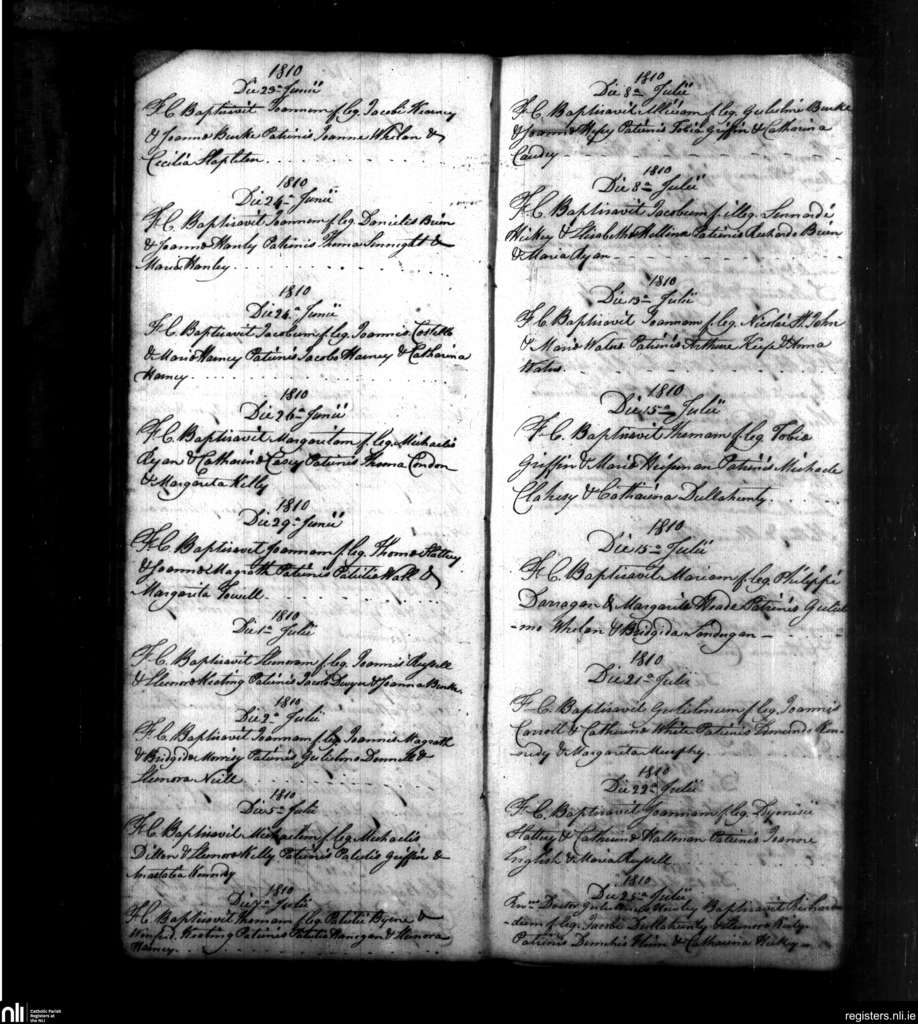 1810
Die 23a Junii
F.C. Baptisavit Joannam f. leg. Jacobi Kearney
& Joanna Burke Patrinis Joanne Whelan &
Cecilia Stapleton
1810
Die 24a Junii
F.C. Baptisavit Joannam f. leg. Danielis Brien
& Joanna Hanly Patrinis Thoma &
Maria Hanley
1810
Die 24a Junii
F.C. Baptisavit Jacobum f. leg. Joannis Costello
& Maria Harney Patrinis Jacobo Harney & Catharina
Harney
1810
Die 26a Junii
F.C. Baptisavit Margaritam f. leg. Michaelis
Ryan & Catharina Casey Patrinis Thoma Condon
& Margarita Kelly
1810
Die 29a Junii
F.C. Baptisavit Joannam f. leg. Thoma Slattery
& Joanna Magrath Patrinis Patritio Wall &
Margarita Fowell
1810
Die 1a Julii
F.C. Baptisavit Elenoram f. leg. Joannis Russell
& Elenora Keating Patrinis Jacobo Dwyer & Joanna Burke
1810
Die 2a Julii
F.C. Baptisavit Joannam f. leg. Joannis Magrath
& Brigida Morrisy Patrinis Gulielmo Donnell &
Elenora Neill
1810
Die 5a Julii
F.C. Baptisavit Michaelem f. leg. Michaelis
Dillon & Elenora Kelly Patrinis Patritio Griffin &
Anastatia Kennedy
1810
Die 7a Julii
F.C. Baptisavit Thomam f. leg. Patritii Byrne &
Keating Patrinis Patritio Hanigan & Elenora
Harney
1810
Die 8a Julii
F.C. Baptisavit f. leg. Gulielmi Burke
& Joanna Patrinis Tobia Griffin & Catharina
1810
Die 8a Julii
F.C. Baptisavit Jacobum f. illeg. Lennardi
Hickey & Elisabetha Patrinis Richardo Brien
& Maria Ryan
1810
Die 13a Julii
F.C. Baptisavit Joannam f. leg. Nicolai St. John
& Maria Watus Patrinis Arthure & Anna
Watus
1810
Die 15a Julii
F.C. Baptisavit Thomam f. leg. Tobia
Griffin & Maria Heffernan Patrinis Michaele
Flahesy & Catharina Dullahunty
1810
Die 15a Julii
F.C. Baptisavit Mariam f. leg. Philippi
Darragan & Margarita Meade Patrinis Guliel
-mo Whelan & Bridgida Londregan
1810
Die 21a Julii
F.C. Baptisavit Gulielmum f. leg. Joannis
Carroll & Catharina White Patrinis Edmundo Ken
-nedy & Margarita Murphy
1810
Die 22a Julii
F.C. Baptisavit Joannam f. leg. Dyonisii
Slattery & Catharina Hallonan Patrinis Joanne
English & Maria Russell
1810
Die 25a Julii
Doctor Baptisavit Richar
-dum f. leg. Jacobi Dullahunty & Elenora
Patrinis & Catharina Hickey
nli
Catholic Parish
Registers at
the NLI
registers.nli.ie